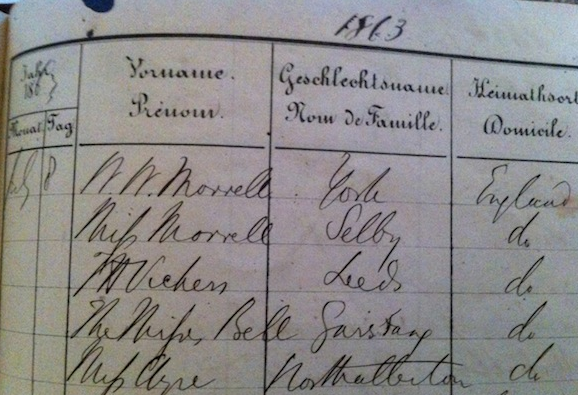 1863
Jahr 186 3
Monat Tag
Vorname.
Prénom.
Geschlechtsname
Nom de Famille.
Heimathsort
Domicile.
July 8 W. W. Morrell York England
Miss Morrell Selby do
Vickers Leeds do
The Misses Bell Garstang do
Miss Ayre Northallerton do